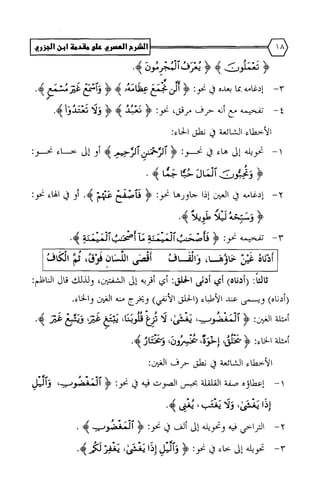 ١٨ الشرح العصري على مقدمة ابن الجزري
﴿ تَعْمَلُونَ ﴾ ﴿ يُعْرَفُ ٱلْمُجْرِمُونَ ﴾.
٣- إدغامه بما بعده في نحو: ﴿ أَلَّن نَّجْمَعَ عِظَامَهُ ﴾ ﴿ وَٱسْمَعْ غَيْرَ مُسْمَعٍ ﴾.
٤- تفخيمه مع أنه حرف مرقق، نحو: ﴿ نَعْبُدُ ﴾ ﴿ وَلَا تَعْتَدُوٓا۟ ﴾.
الأخطاء الشائعة في نطق الحاء:
١- تحويله إلى هاء في نحو: ﴿ ٱلرَّحْمَٰنِ ٱلرَّحِيمِ ﴾ أو إلى خاء نحو:
﴿ وَتُحِبُّونَ ٱلْمَالَ حُبًّا جَمًّا ﴾ .
٢- إدغامه في العين إذا جاورها نحو: ﴿ فَٱصْفَحْ عَنْهُمْ ﴾. أو في الهاء نحو:
﴿ وَسَبِّحْهُ لَيْلًا طَوِيلًا ﴾.
٣- تفخيمه نحو: ﴿ فَأَصْحَٰبُ ٱلْمَيْمَنَةِ مَآ أَصْحَٰبُ ٱلْمَيْمَنَةِ ﴾.
أَدْنَاهُ غَيْنٌ خَاؤُهَا، وَالْقَافُ أَقْصَى اللِّسَانِ فَوْقُ، ثُمَّ الْكَافُ
ثالثاً: (أدناه) أي أدنى الحلق: أي أقربه إلى الشفتين، ولذلك قال الناظم:
(أدناه) ويسمى عند الأطباء (الحلق الأنفي) ويخرج منه الغين والخاء.
أمثلة الغين: ﴿ ٱلْمَغْضُوبِ، يَغْشَىٰ، لَا تُزِغْ قُلُوبَنَا، يَبْتَغِ غَيْرَ، وَيَتَّبِعْ غَيْرَ ﴾.
أمثلة الخاء: ﴿ يَخْلُقُ، إِخْوَةٌ، يُخْسِرُونَ، وَيَخْتَارُ ﴾.
الأخطاء الشائعة في نطق حرف الغين:
١- إعطاؤه صفة القلقلة بحبس الصوت فيه في نحو: ﴿ ٱلْمَغْضُوبِ، وَٱلَّيْلِ
إِذَا يَغْشَىٰ، وَلَا يَغْتَب، يُغْنِى ﴾.
٢- التراخي فيه وتحويله إلى ألف في نحو: ﴿ ٱلْمَغْضُوبِ ﴾ .
٣- تحويله إلى خاء في نحو: ﴿ وَٱلَّيْلِ إِذَا يَغْشَىٰ، يَغْفِرْ لَكُمْ ﴾.